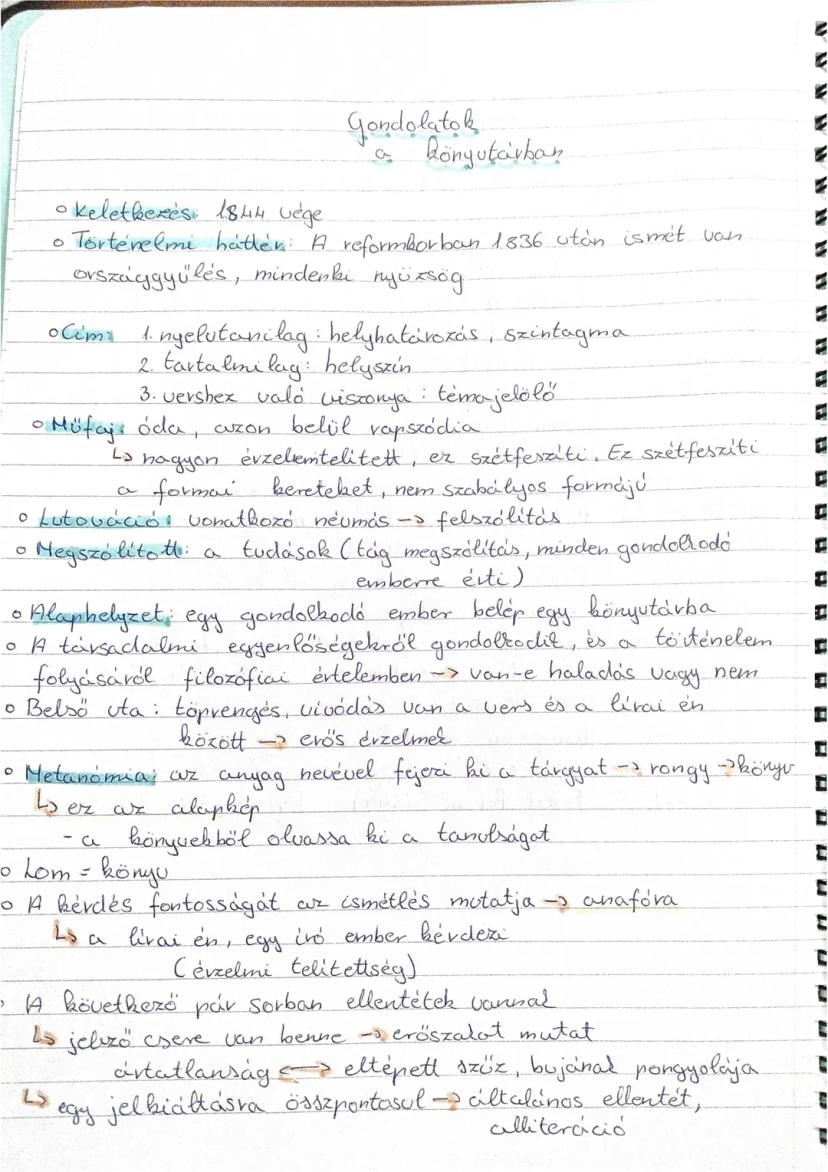 Gondolatok
a könyvtárban
o Keletkezés: 1844 vége
o Történelmi hátlér: A reformkorban 1836 után ismét van
országgyűlés, mindenki nyüzsög
o Cím: 1. nyelvtanilag: helyhatározás, szintagma
2. tartalmilag: helyszín
3. vershez való viszonya: témajelölő
o Műfaj: óda, azon belül rapszódia
↳ nagyon érzelemtelített, ez szétfeszíti. Ez szétfeszíti
a formai kereteket, nem szabályos formájú
o Lutováció: vonatkozó névmás → felszólítás
o Megszólított: a tudások (tág megszólítás, minden gondolkodó
emberre érti)
o Alaphelyzet: egy gondolkodó ember belép egy könyvtárba
o A társadalmi egyenlőségekről gondolkodik, és a történelem
folyásáról filozófiai értelemben → van-e haladás vagy nem
o Belső vta: töprengés, vívódás van a vers és a lírai én
között → erős érzelmek
o Metanómia: az anyag nevével fejezi ki a tárgyat → rongy → könyv
↳ ez az alapkép
- a könyvekből olvassa ki a tanulságot
o Lom = könyv
o A kérdés fontosságát az ismétlés mutatja → anafóra
↳ a lírai én, egy író ember kérdezi
(érzelmi telítettség)
o A következő pár sorban ellentétek vannak
↳ jelző csere van benne → erőszakot mutat
ártatlanság ⟷ eltépett szűz, bujának pongyolája
↳ egy jelkiáltásra összpontosul → általános ellentét,
alliteráció